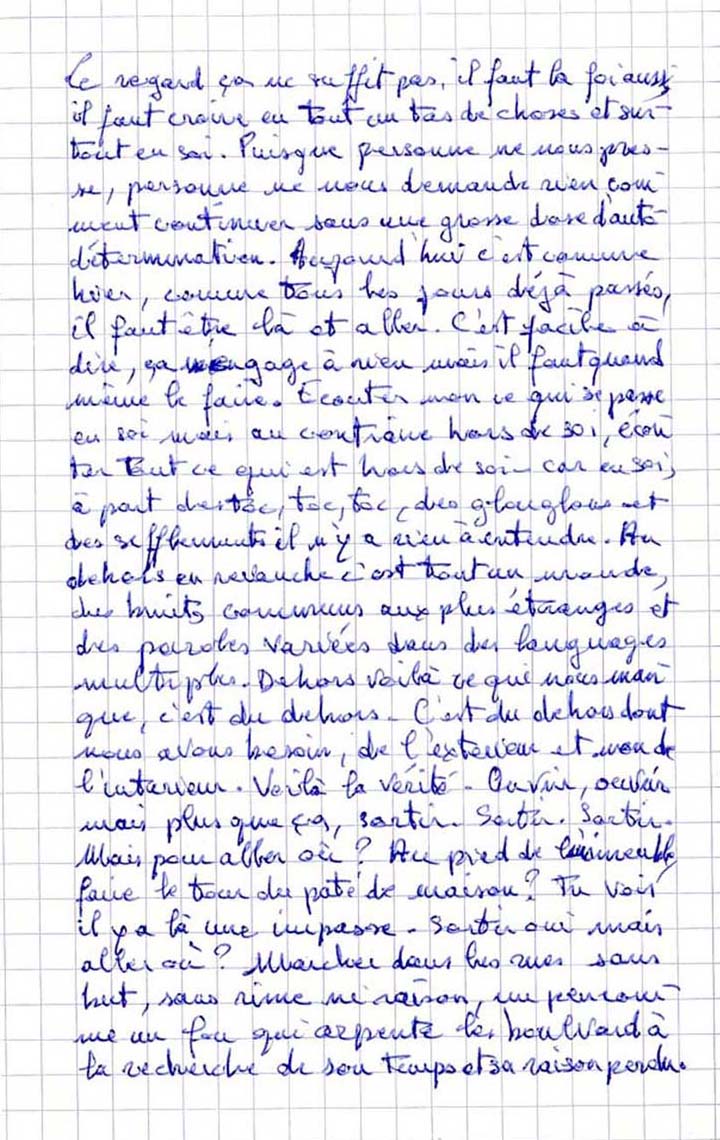 Le regard ça ne suffit pas, il faut la foi aussi
il faut croire en tout un tas de choses et sur-
tout en soi. Puisque personne ne nous pres-
se, personne ne nous demande rien com-
ment continuer sans une grosse dose d'auto
détermination. Aujourd'hui c'est comme
hier, comme tous les jours déjà passés,
il faut être là et aller. C'est facile à
dire, ça n'engage à rien mais il faut quand
même le faire. Écouter non ce qui se passe
en soi mais au contraire hors de soi, écou
ter tout ce qui est hors de soi - car en soi,
à part des toc, toc, toc, des glouglous et
des sifflements il n'y a rien à entendre. Au
dehors en revanche c'est tout un monde,
des bruits communs aux plus étranges et
des paroles variées dans des languages
multiples. Dehors voilà ce qui nous man
que, c'est du dehors - C'est du dehors dont
nous avons besoin, de l'exterieur et non de
l'interieur. Voilà la vérité - Ouvrir, ouvrir
mais plus que ça, sortir. Sortir. Sortir.
Mais pour aller où ? Au pied de l'immeuble,
faire le tour du paté de maison ? Tu vois
il y a là une impasse - Sortir oui mais
aller où ? Marcher dans les rues sans
but, sans rime ni raison, un peu com-
me un fou qui arpente les boulvard à
la recherche de son temps et sa raison perdu.